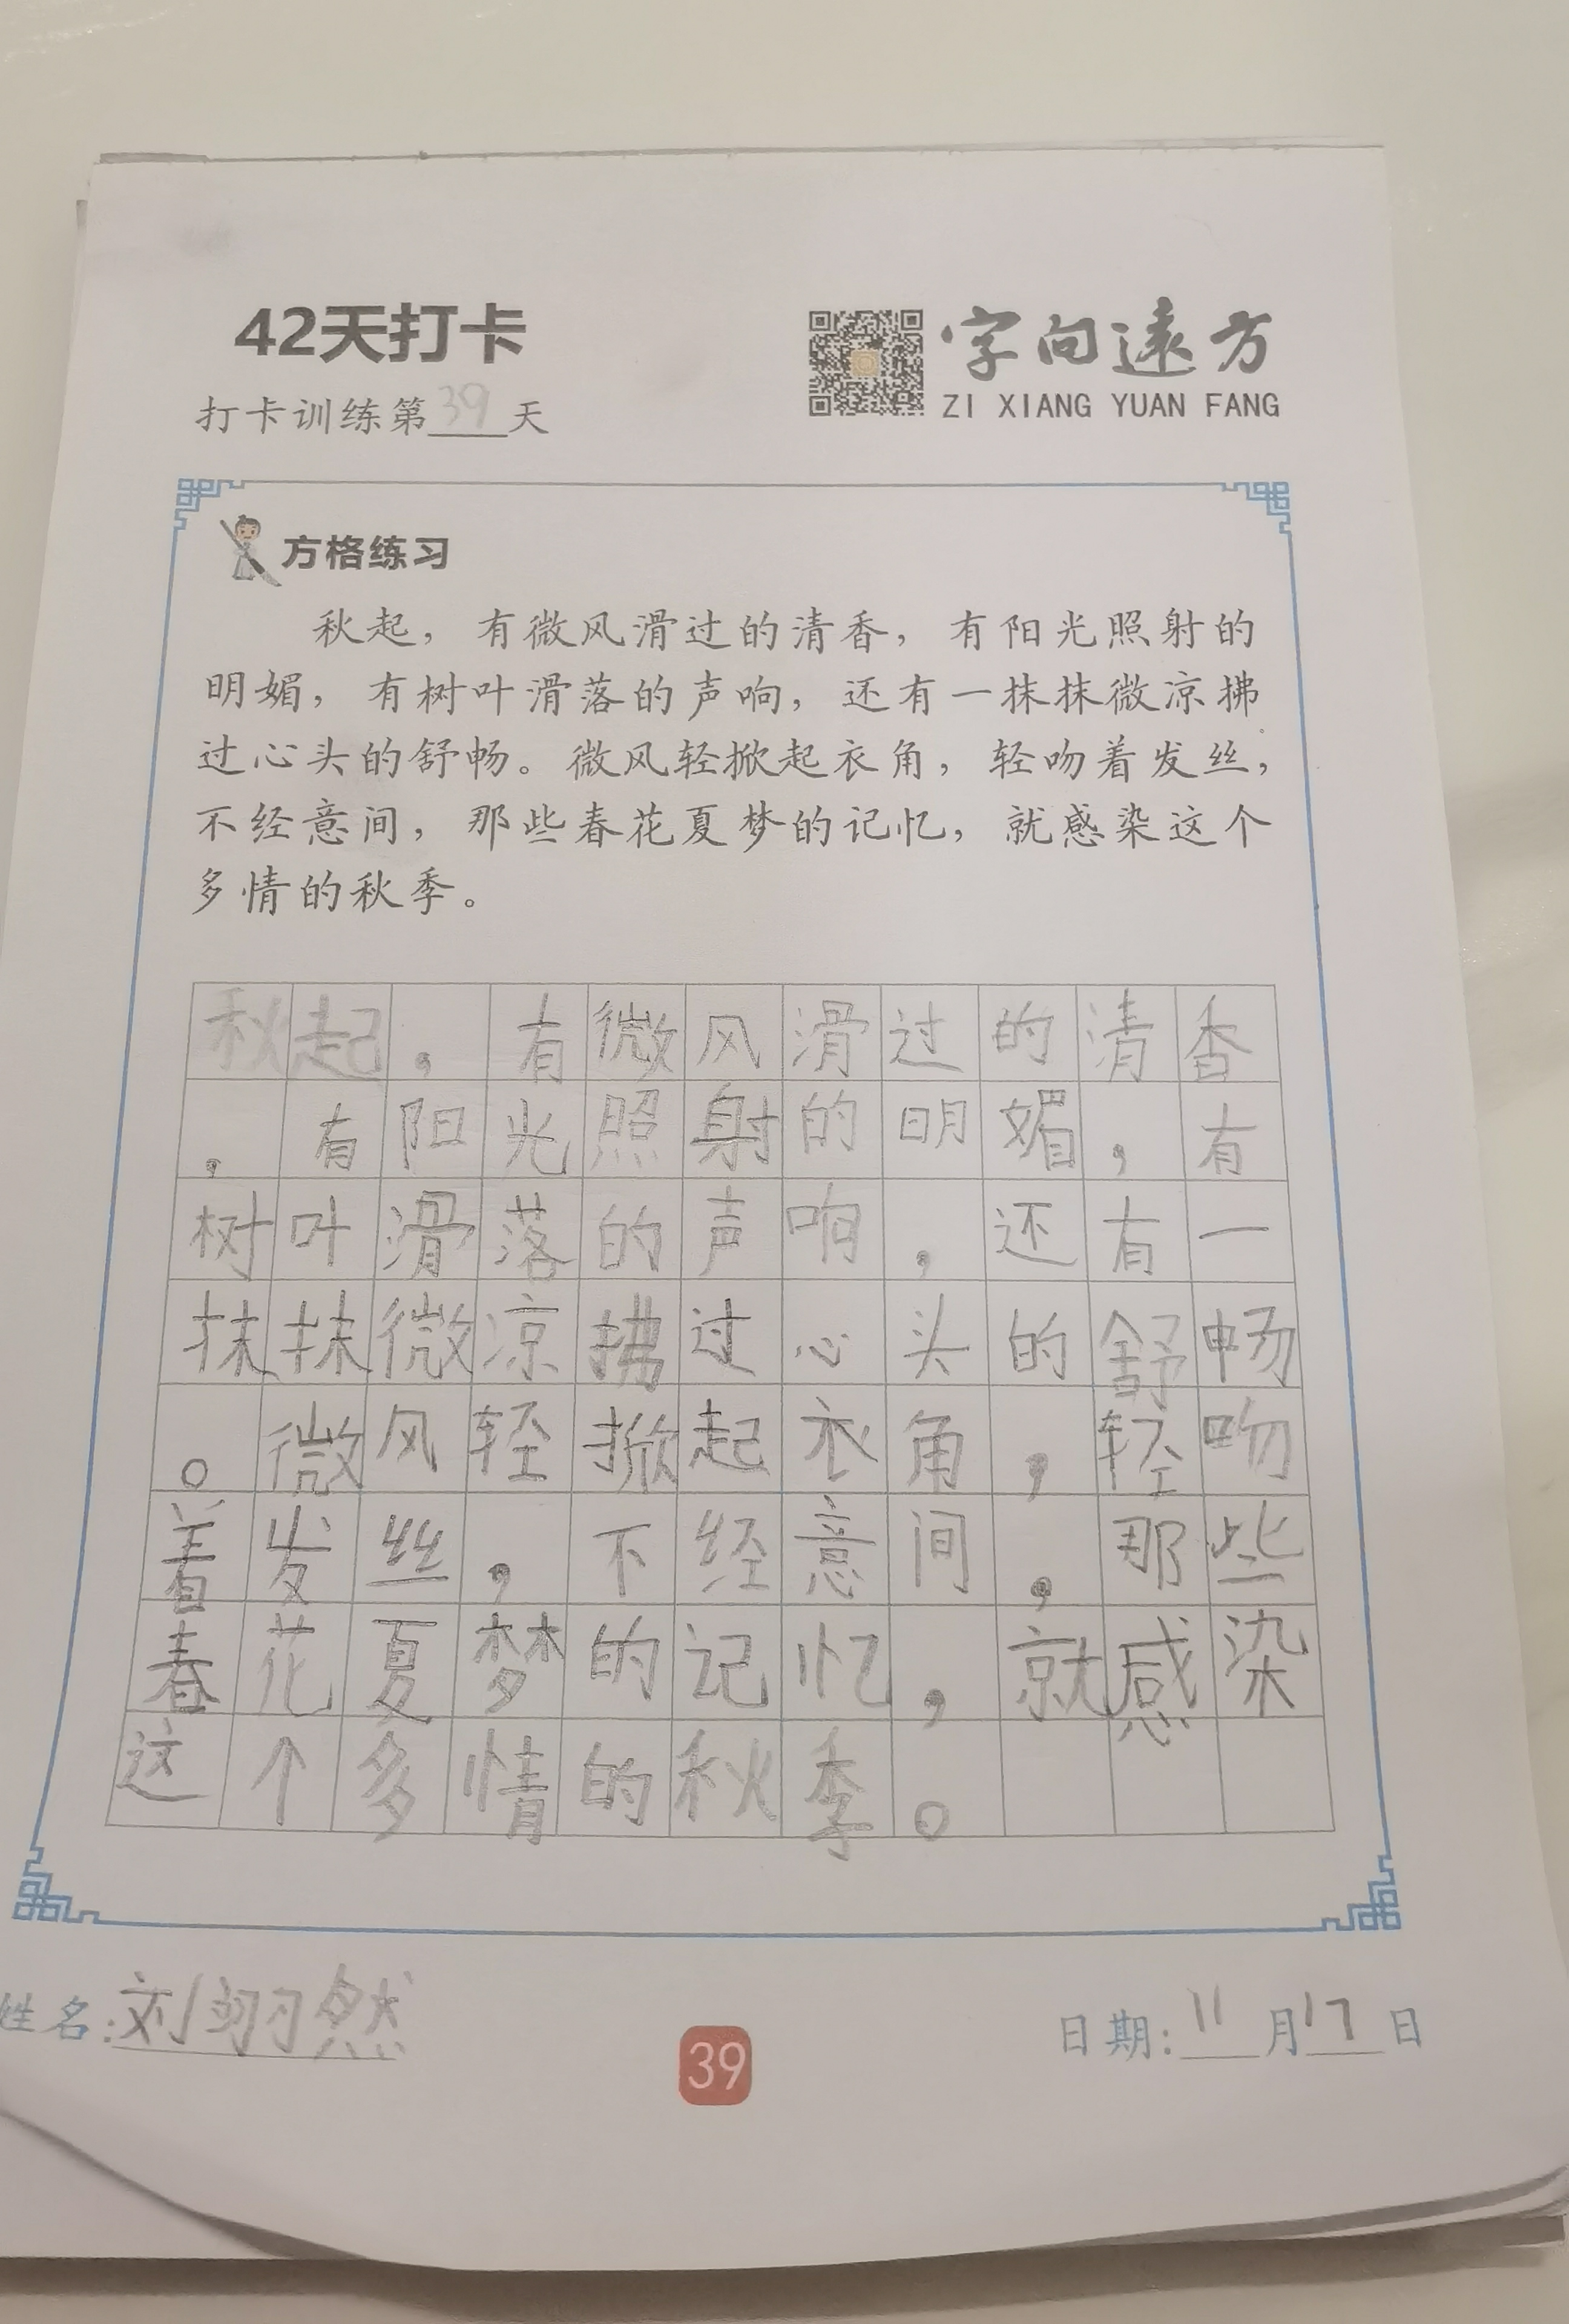 42天打卡
字向遠方
ZI XIANG YUAN FANG
打卡训练第39天
方格练习
秋起，有微风滑过的清香，有阳光照射的
明媚，有树叶滑落的声响，还有一抹抹微凉拂
过心头的舒畅。微风轻掀起衣角，轻吻着发丝，
不经意间，那些春花夏梦的记忆，就感染这个
多情的秋季。
秋起，有微风滑过的清香
，有阳光照射的明媚，有
树叶滑落的声响，还有一
抹抹微凉拂过心头的舒畅
。微风轻掀起衣角，轻吻
着发丝，不经意间，那些
春花夏梦的记忆，就感染
这个多情的秋季。
姓名:刘羽然
日期:11月17日
39